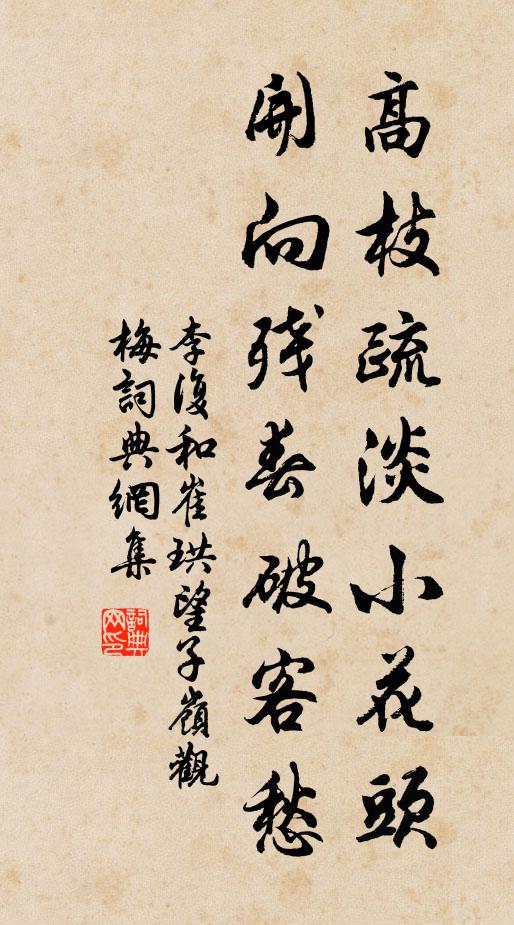 高枝疏淡小花頭
開向殘春破客愁
李復和崔珙望子嶺觀
梅詞典網集
詞典
网印